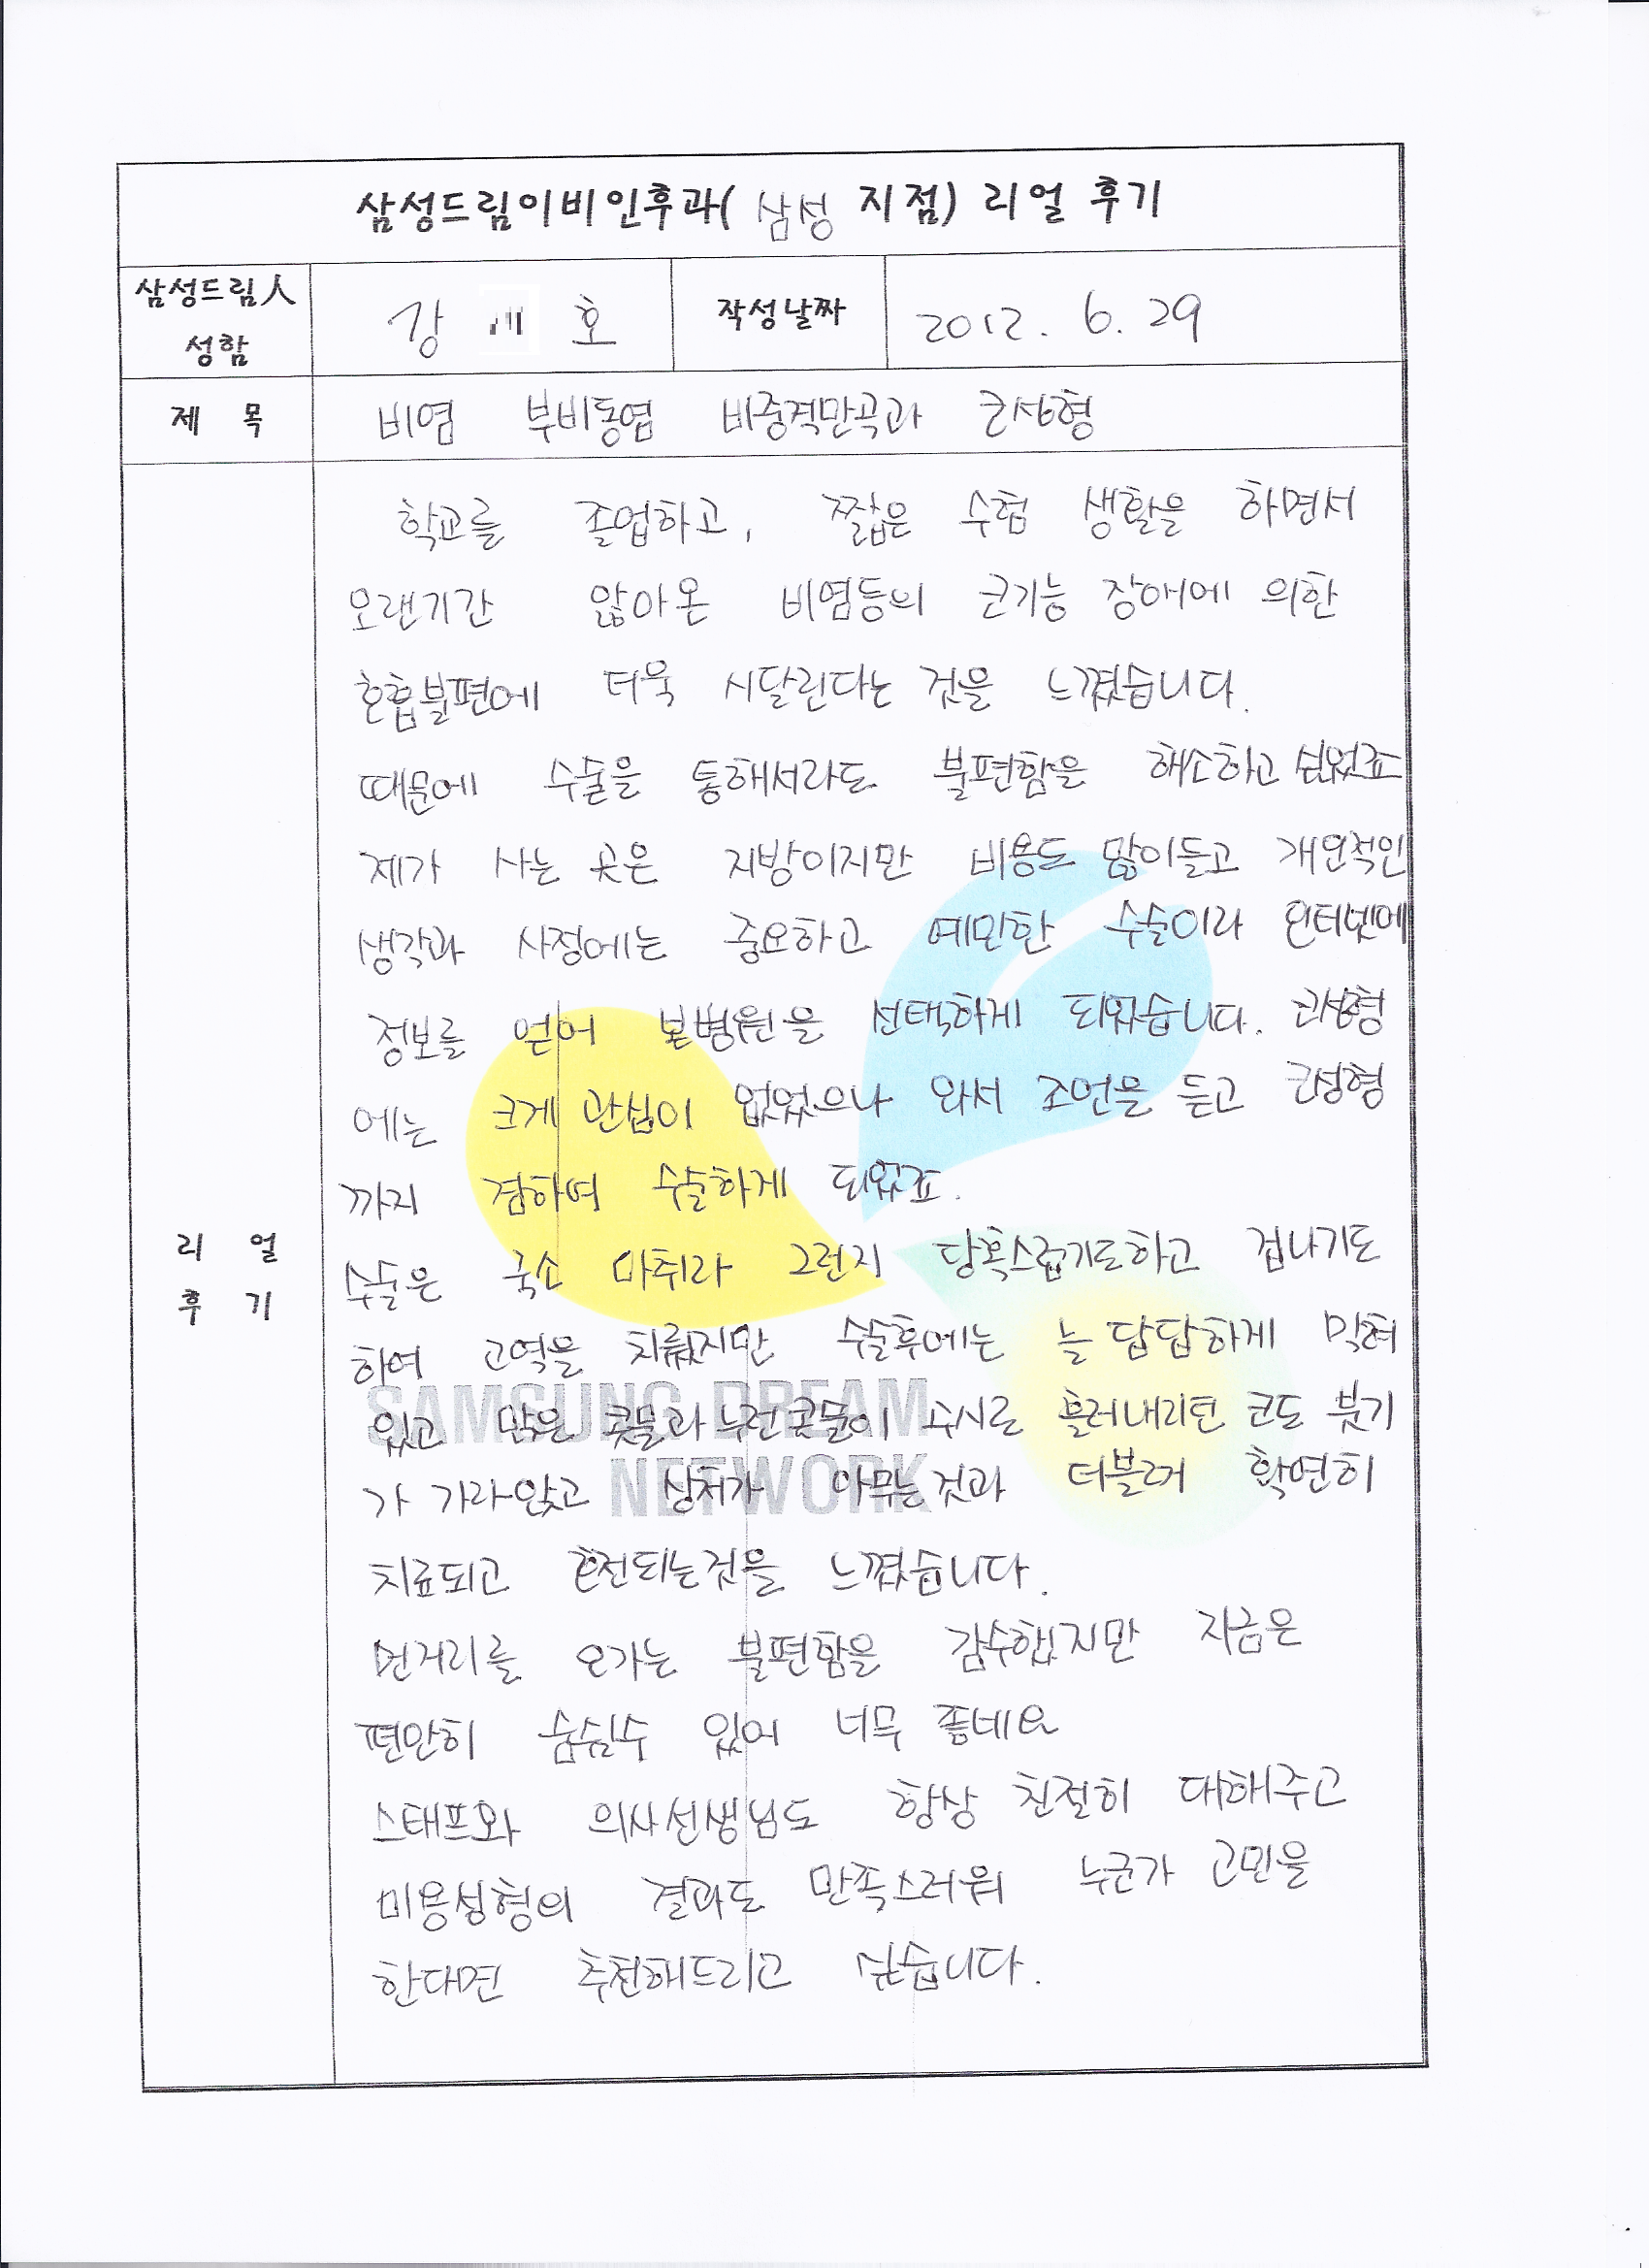 삼성드림이비인후과( 삼성 지점) 리얼 후기
삼성드림人 성함
강 호
작성날짜
2012. 6. 29
제 목
비염 부비동염 비중격만곡과 코성형
리 얼 후 기
학교를 졸업하고, 짧은 수험 생활을 하면서
오랜기간 앓아온 비염등의 코기능 장애에 의한
호흡불편에 더욱 시달린다는 것을 느꼈습니다.
때문에 수술을 통해서라도 불편함을 해소하고 싶었죠
제가 사는 곳은 지방이지만 비용도 많이들고 개인적인
생각과 사정에는 중요하고 예민한 수술이라 인터넷에
정보를 얻어 본병원을 선택하게 되었습니다. 코성형
에는 크게 관심이 없었으나 와서 조언을 듣고 코성형
까지 겸하여 수술하게 되었죠.
수술은 국소 마취라 그런지 당혹스럽기도하고 겁나기도
하여 고역을 치뤘지만 수술후에는 늘 답답하게 막혀
있고 맑은 콧물과 누런콧물이 수시로 흘러내리던 코도 붓기
가 가라앉고 상처가 아무는것과 더불어 확연히
치료되고 호전되는것을 느꼈습니다.
먼거리를 오가는 불편함을 감수했지만 지금은
편안히 숨쉴수 있어 너무 좋네요
스태프와 의사선생님도 항상 친절히 대해주고
미용성형의 결과도 만족스러워 누군가 고민을
한다면 추천해드리고 싶습니다.
SAMSUNG DREAM
NETWORK